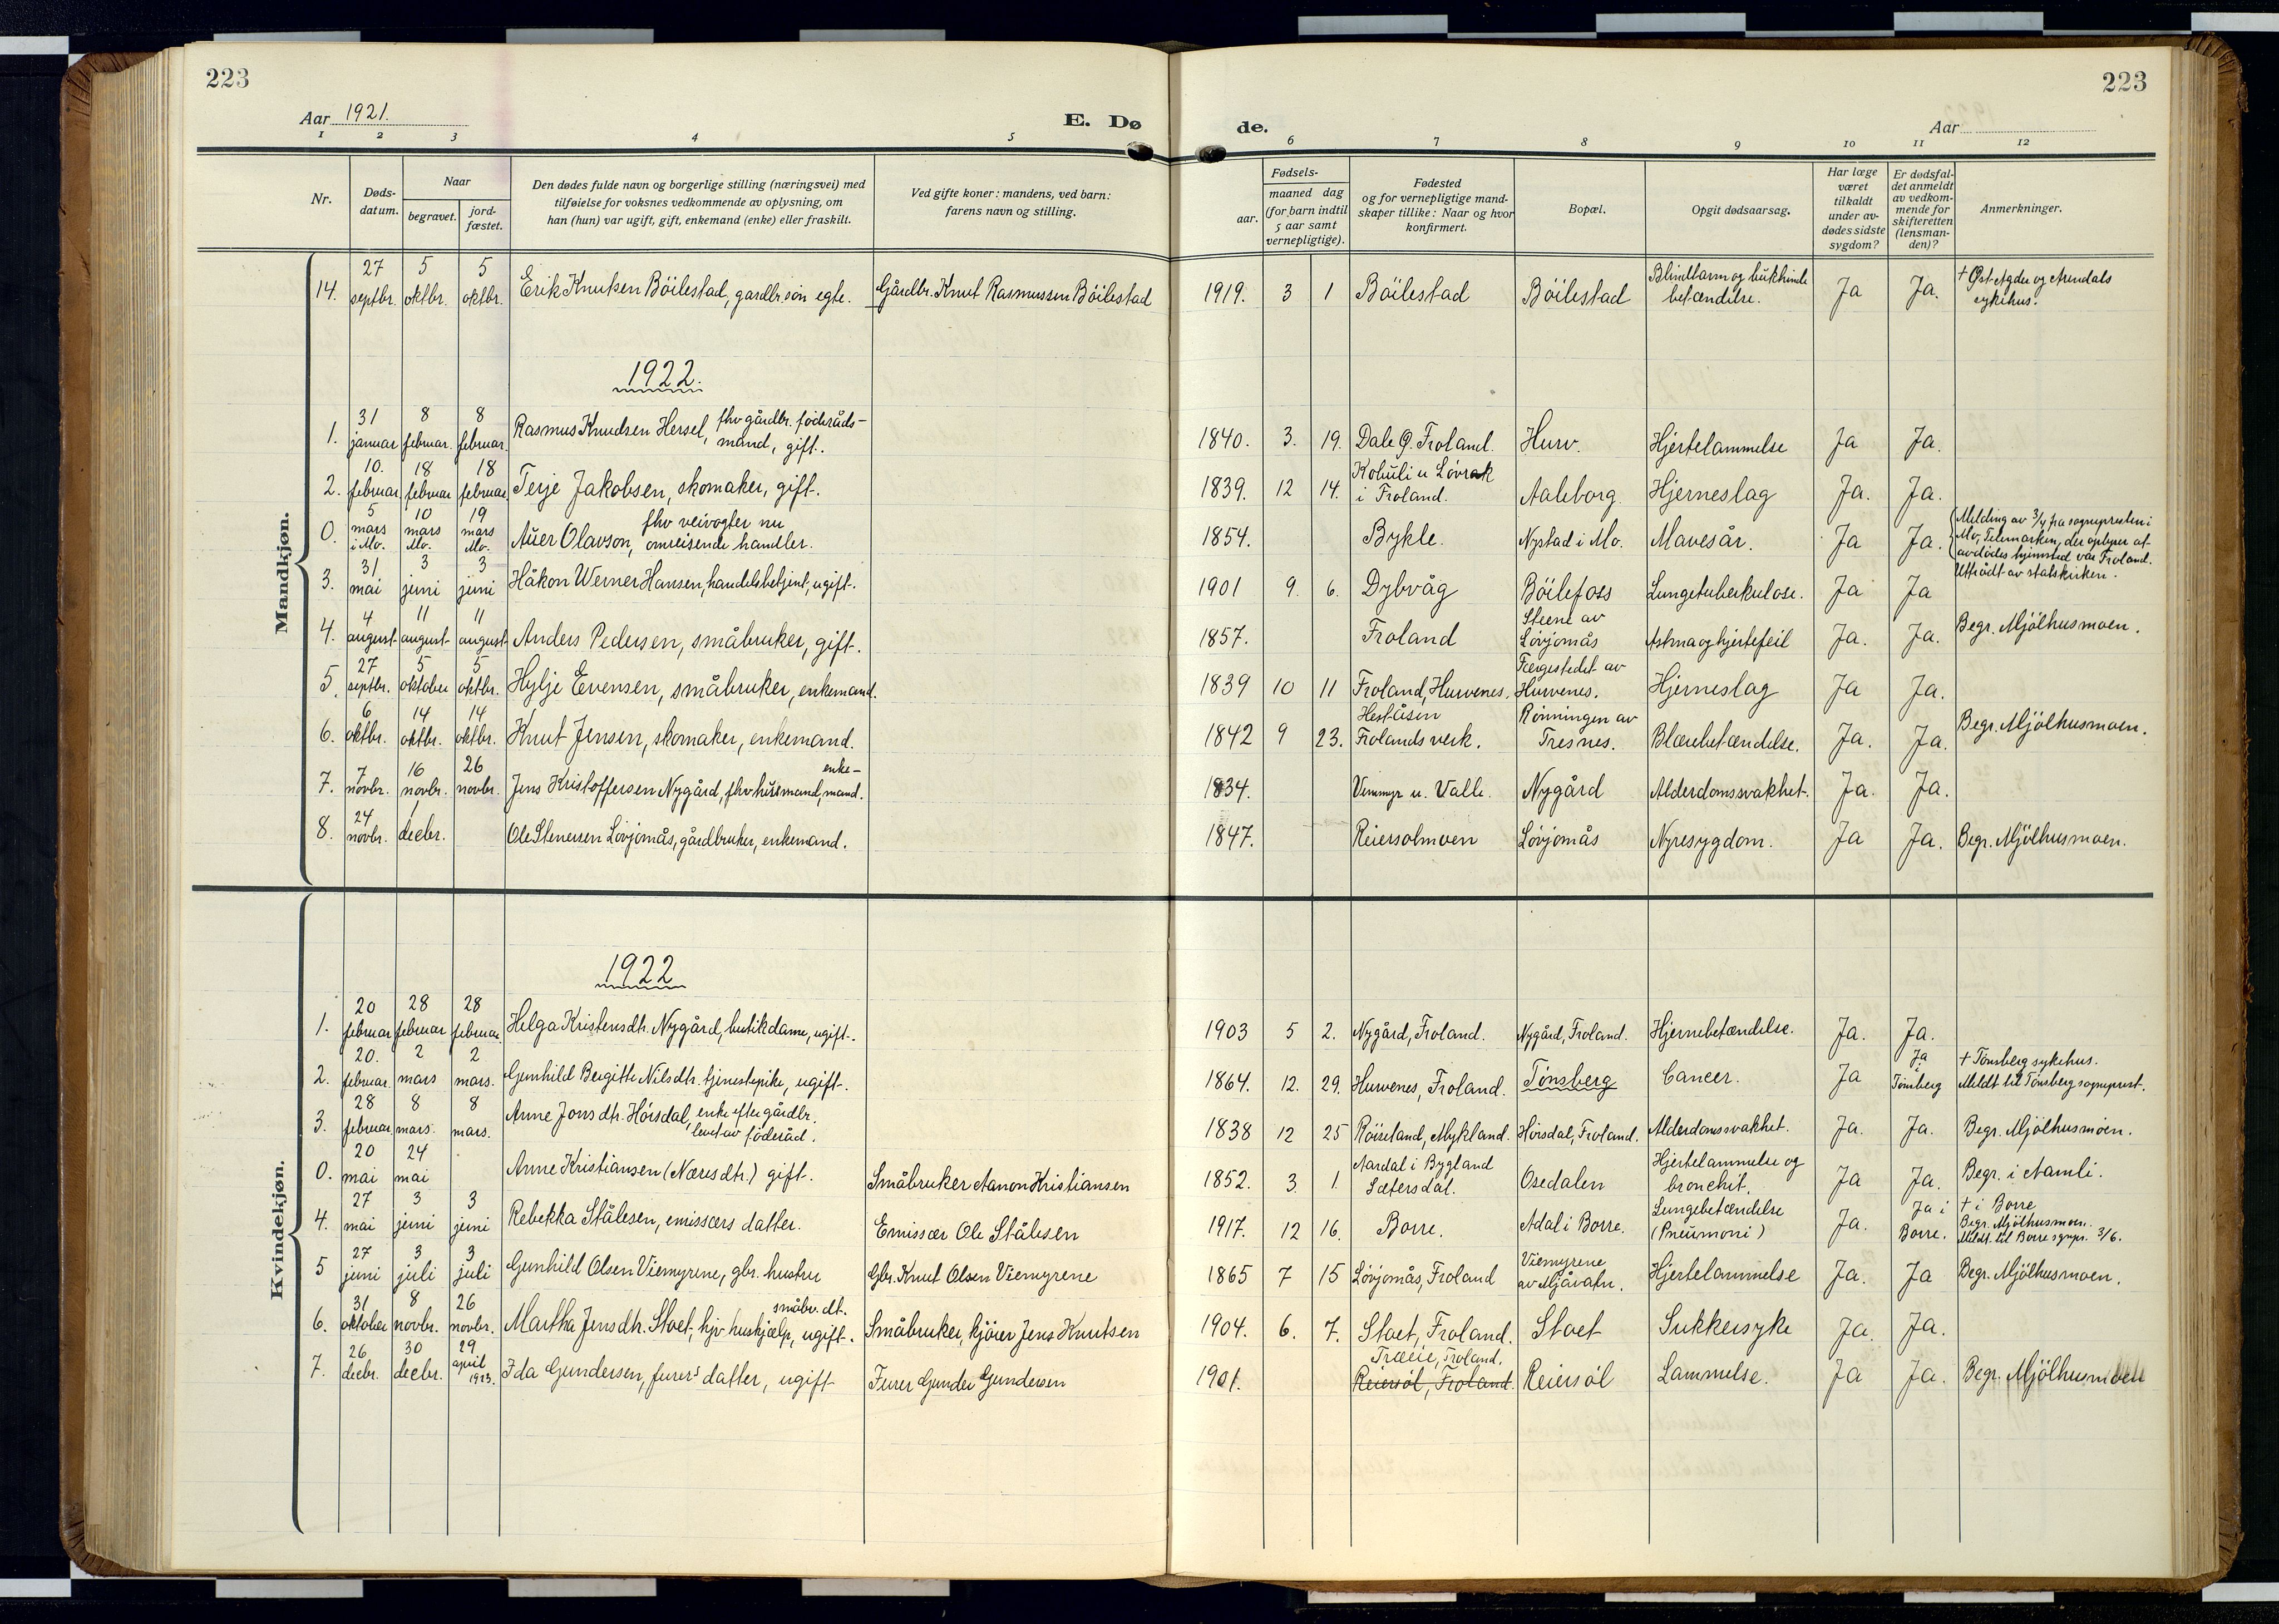 223
223
Aar 1921.
E. Dø
de.
Aar
1 2 3 4 5 6 7 8 9 10 11 12
Nr.
Døds-datum.
Naar
begravet.
jord-fæstet.
Den dødes fulde navn og borgerlige stilling (næringsvei) med
tilføielse for voksnes vedkommende av oplysning, om
han (hun) var ugift, gift, enkemand (enke) eller fraskilt.
Ved gifte koner: mandens, ved barn:
farens navn og stilling.
Fødsels-
aar.
maaned dag
(for barn indtil
5 aar samt
vernepligtige).
Fødested
og for vernepligtige mand-
skaper tillike: Naar og hvor
konfirmert.
Bopæl.
Opgit dødsaarsag.
Har læge
været
tilkaldt
under av-
dødes sidste
sygdom?
Er dødsfal-
det anmeldt
av vedkom-
mende for
skifteretten
(lensman-
den)?
Anmerkninger.
Mandkjøn.
14. 27 septbr. 5 oktbr. 5 oktbr. Erik Knutsen Böilestad, gardbr.sön egte. Gårdbr. Knut Rasmussen Böilestad 1919. 3 1 Böilestad Böilestad Blindtarm og bukhinde betændelse. Ja Ja. † Øst-Agder og Arendals sykehus.
1922.
1. 31 januar 8 februar. 8 februar. Rasmus Knudsen Hersel, fhv gårdbr. föderåds-mand, gift. 1840. 3. 19. Dale Ö. Froland. Hurv. Hjertelammelse Ja Ja.
2. 10. februar 18 februar 18 februar. Terje Jakobsen, skomaker, gift. 1839. 12 14. Kobuli u Lövrak i Froland. Aalborg. Hjerneslag Ja. Ja.
0. 5 mars i Mo. 10 mars Mo. 19 mars Mo. Auer Olavson, fhv veivogter nu omreisende handler. 1854. Bykle. Nystad i Mo. Mavesår. Ja Ja. Melding av 3/4 fra sognepresten i Mo, Telemarken, der oplyser at avdödes hjemsted var Froland.
3. 31 mai 3 juni 3 juni Håkon Werner Hansen, handelsbetjent, ugift. 1901 9. 6. Dybvåg Böilefoss Lungetuberkulose. Ja Ja Utträdt av statskirken.
4. 4 august 11 august 11 august Anders Pedersen, småbruker, gift. 1857. Froland Steene av Lövjomås Astma og hjertefeil Ja. Ja. Begr. Mjölhusmoen.
5. 27 septbr. 5 oktober 5 oktbr. Hylje Evensen, småbruker, enkemand. 1839 10 11 Froland, Hurvenes. Færgestedet av Hurvenes. Hjerneslag Ja Ja.
6. 6 oktbr. 14 oktbr. 14 oktbr. Knut Jensen, skomaker, enkemand. 1842 9 23. Heståsen Frolands verk. Rönningen av Tresnes. Blærebetændelse. Ja. Ja. Begr. Mjölhusmoen.
7. 7 novbr. 16 novbr. 26 novbr. Jens Kristoffersen Nygård, fhv husmand, enke-mand. 1834. Vimmyr u. Valle. Nygård Alderdomssvakhet. Ja. Ja.
8. 24 novbr. 1 decbr. Ole Stenersen Lövjomås, gårdbruker, enkemand. 1847. Reiersolmoen Lövjomås Nyresygdom. Ja Ja. Begr. Mjölhusmoen.
Kvindekjøn.
1922
1. 20 februar 28 februar 28 februar Helga Kristensdtr. Nygård, butikdame, ugift. 1903 5 2. Nygård, Froland. Nygård, Froland. Hjernebetændelse. Ja. Ja.
2. 20. februar 2 mars 2 mars. Gunhild Bergitte Nilsdtr. tjenestepike, ugift. 1864. 12. 29. Hurvenes, Froland. Tönsberg Cancer. Ja Ja Tönsberg † Tönsberg sykehus. Meldt til Tönsberg sogneprest.
3. 28 februar 8 mars. 8 mars. Anne Jonsdtr. Hörsdal, enke efter gårdbr. levet av föderåd. 1838 12 25 Röiseland, Mykland. Hörsdal, Froland. Alderdomssvakhet. Ja. Ja. Begr. Mjölhusmoen.
0. 20 mai 24 mai Anne Kristiansen (Næresdtr.) gift. Småbruker Aanon Kristiansen 1852. 3 1. Aardal i Bygland Sætersdal. Osedalen Hjertelammelse og bronchit. Ja Ja. Begr. i Åmli.
4. 27 mai 3 juni 3 juni Rebekka Stålesen, emissærs datter. Emissær Ole Stålesen 1917. 12 16. Borre. Adal i Borre. Lungebetændelse (Pneumoni) Ja. Ja i Borre. † i Borre Begr. Mjölhusmoen. Meldt til Borre sognpr. 3/6.
5 27 juni 3 juli 3 juli Gunhild Olsen Viemyrene, gbr. hustru Gbr. Knut Olsen Viemyrene 1865 7 15 Lövjomås, Froland Viemyrene av Mjåvatn. Hjertelammelse Ja. Ja Begr. Mjölhusmoen.
6. 31 oktober 8 novbr. 26 novbr. Martha Jensdtr. Stoet, hjv. huskjælp, ugift. småbr. dt. Småbruker, kjörer Jens Knutsen 1904. 6. 7. Stoet, Froland. Stoet Sukkersyke Ja. Ja.
7. 26 decbr. 30 decbr. 29 april 1923. Ida Gundersen, furers datter, ugift Furer Gunder Gundersen 1901. Træeie, Froland. Reiersöl, Froland. Reiersöl Lammelse. Ja Ja. Begr. Mjölhusmoen